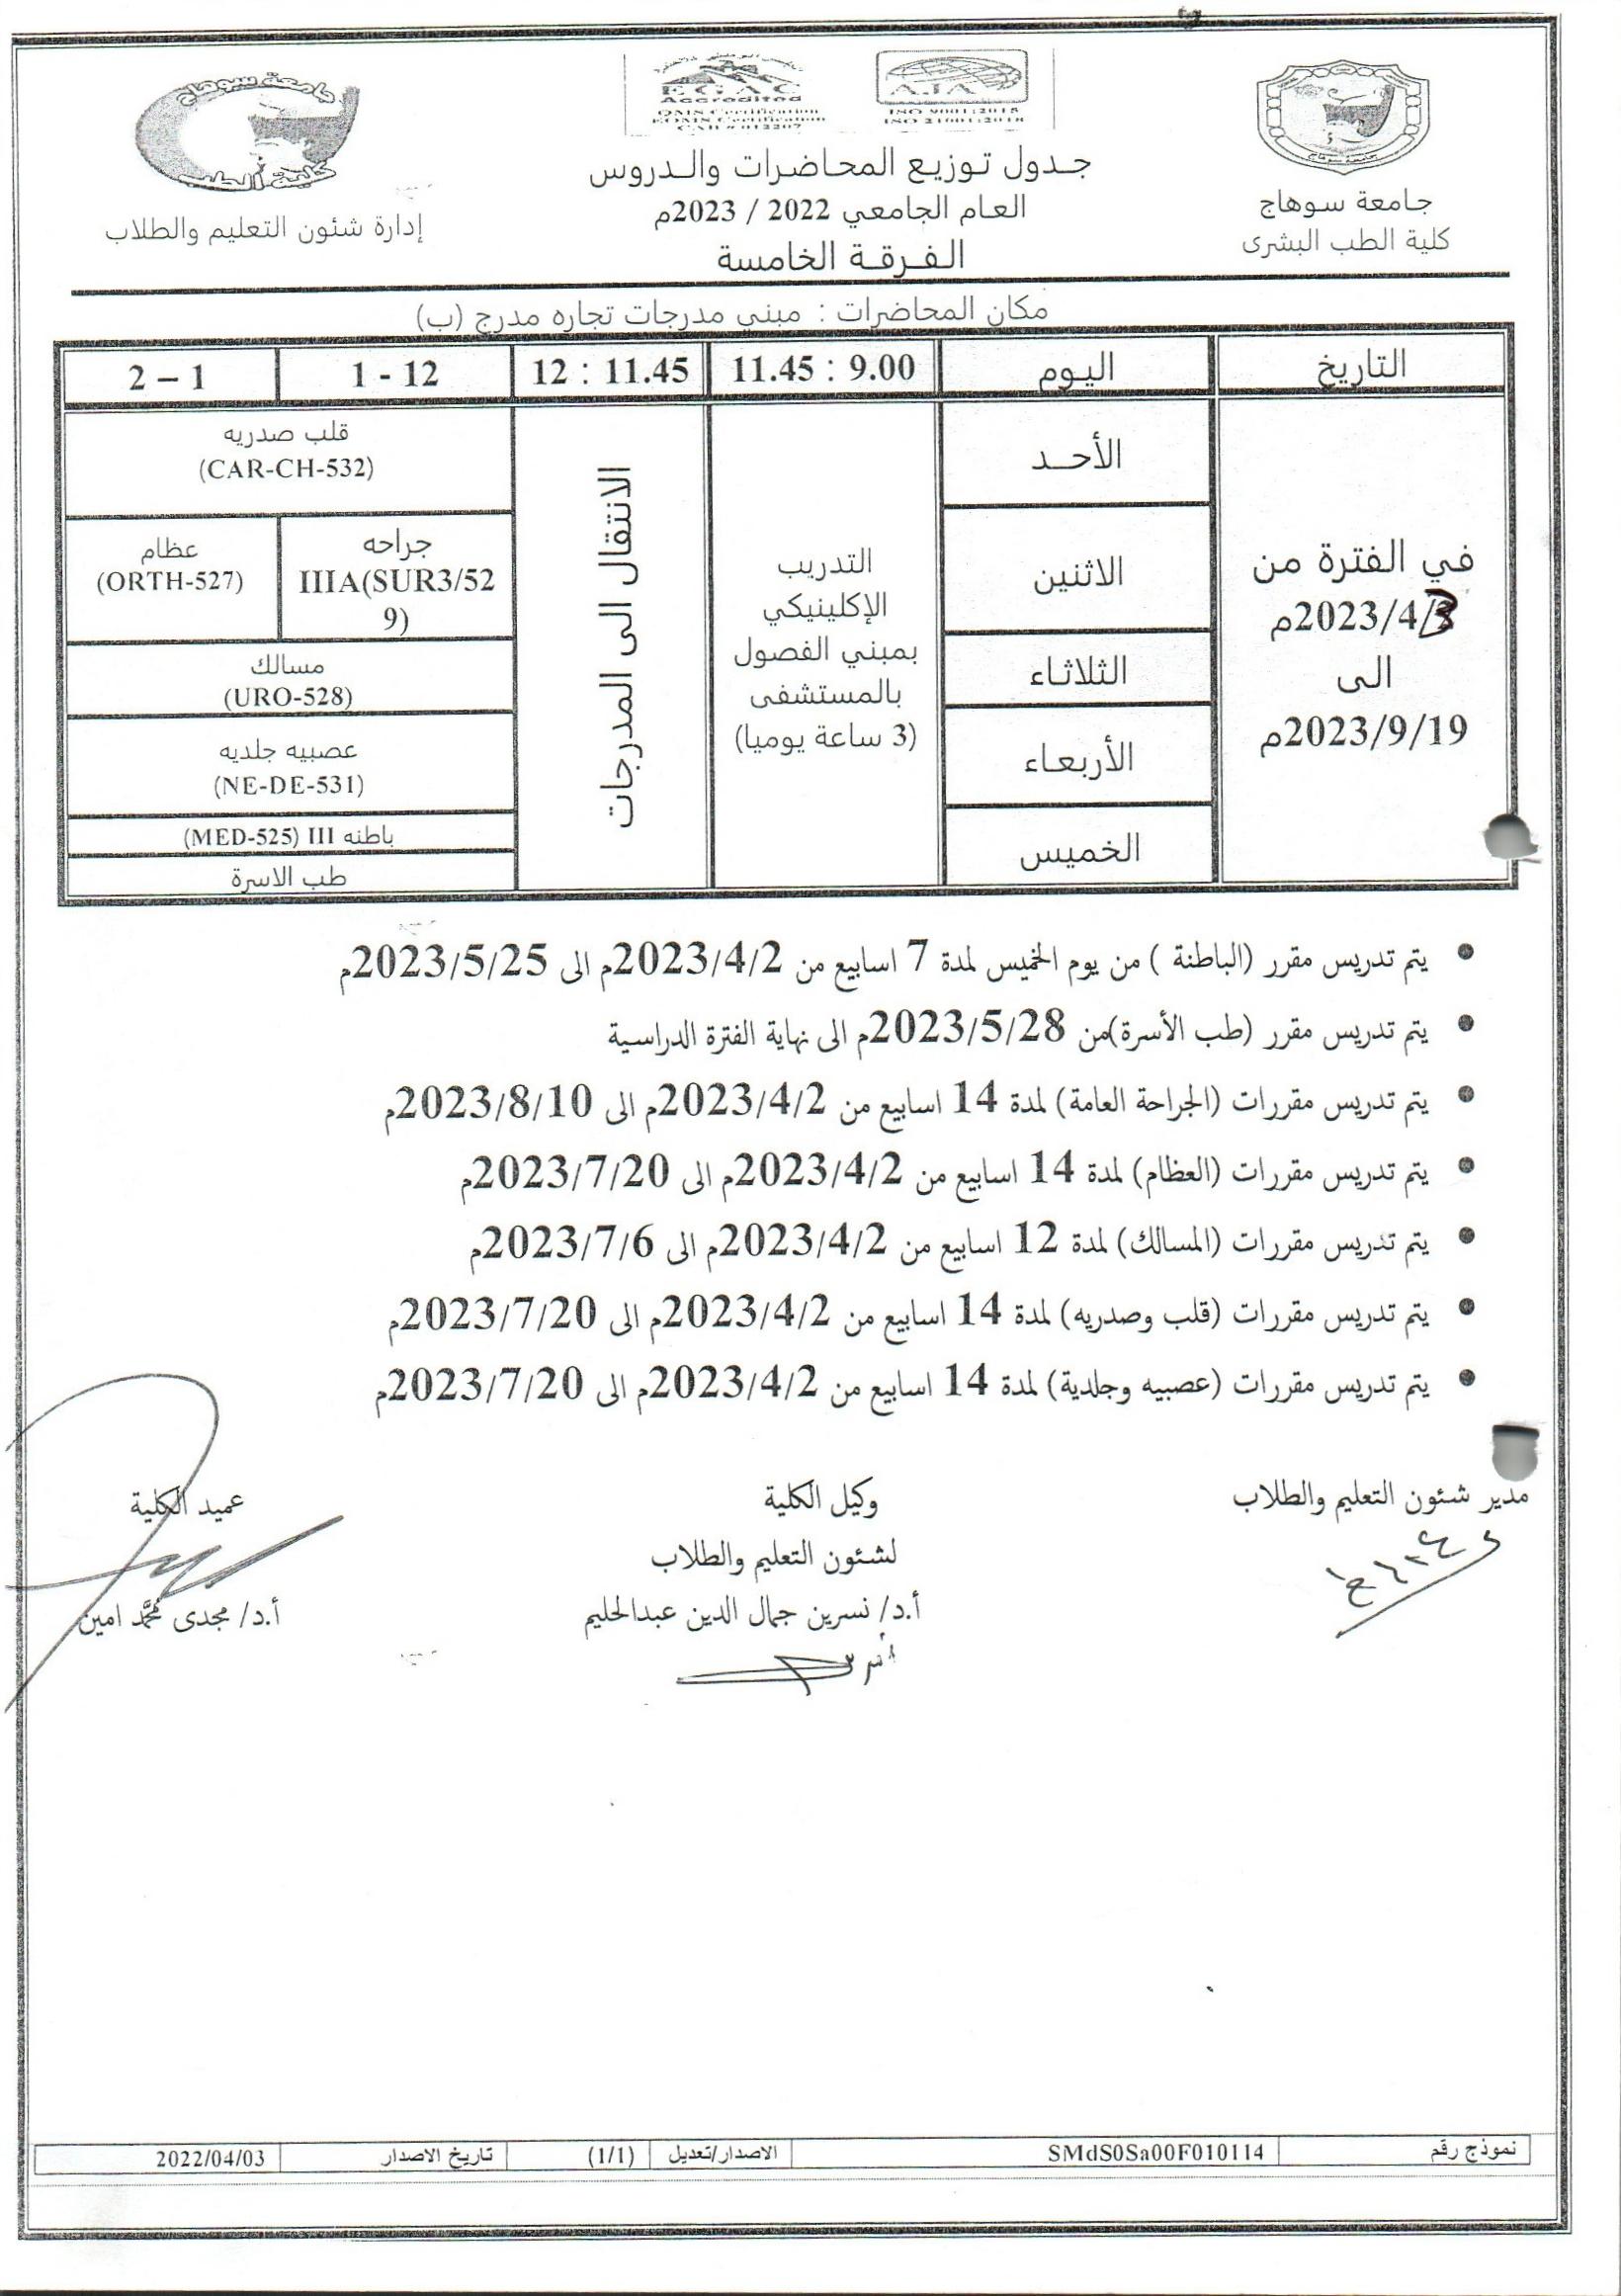 جامعة سوهاج
كلية الطب البشرى
EGAC
Accredited
QMS Certification
EOMS Certification
CAB # 012207
AJA
ISO 9001:2015
ISO 21001:2018
جدول توزيع المحاضرات والدروس
العام الجامعي 2022 / 2023م
الفرقة الخامسة
جامعة سوهاج
كلية الطب
إدارة شئون التعليم والطلاب
مكان المحاضرات : مبنى مدرجات تجاره مدرج (ب)
التاريخ اليوم 9.00 : 11.45 11.45 : 12 12 - 1 1 – 2
في الفترة من
2023/4/3م
الى
2023/9/19م
الأحد
الاثنين
الثلاثاء
الأربعاء
الخميس
التدريب
الإكلينيكي
بمبني الفصول
بالمستشفى
(3 ساعة يوميا)
الانتقال الى المدرجات
قلب صدريه
(CAR-CH-532)
جراحه
IIIA(SUR3/52
9)
عظام
(ORTH-527)
مسالك
(URO-528)
عصبيه جلديه
(NE-DE-531)
باطنه III (MED-525)
طب الاسرة
• يتم تدريس مقرر (الباطنة ) من يوم الخميس لمدة 7 اسابيع من 2023/4/2م الى 2023/5/25م
• يتم تدريس مقرر (طب الأسرة)من 2023/5/28م الى نهاية الفترة الدراسية
• يتم تدريس مقررات (الجراحة العامة) لمدة 14 اسابيع من 2023/4/2م الى 2023/8/10م
• يتم تدريس مقررات (العظام) لمدة 14 اسابيع من 2023/4/2م الى 2023/7/20م
• يتم تدريس مقررات (المسالك) لمدة 12 اسابيع من 2023/4/2م الى 2023/7/6م
• يتم تدريس مقررات (قلب وصدريه) لمدة 14 اسابيع من 2023/4/2م الى 2023/7/20م
• يتم تدريس مقررات (عصبيه وجلدية) لمدة 14 اسابيع من 2023/4/2م الى 2023/7/20م
مدير شئون التعليم والطلاب
وكيل الكلية
لشئون التعليم والطلاب
أ.د/ نسرين جمال الدين عبدالحليم
عميد الكلية
أ.د/ مجدى محمد امين
نموذج رقم SMdS0Sa00F010114 الاصدار/تعديل (1/1) تاريخ الاصدار 2022/04/03